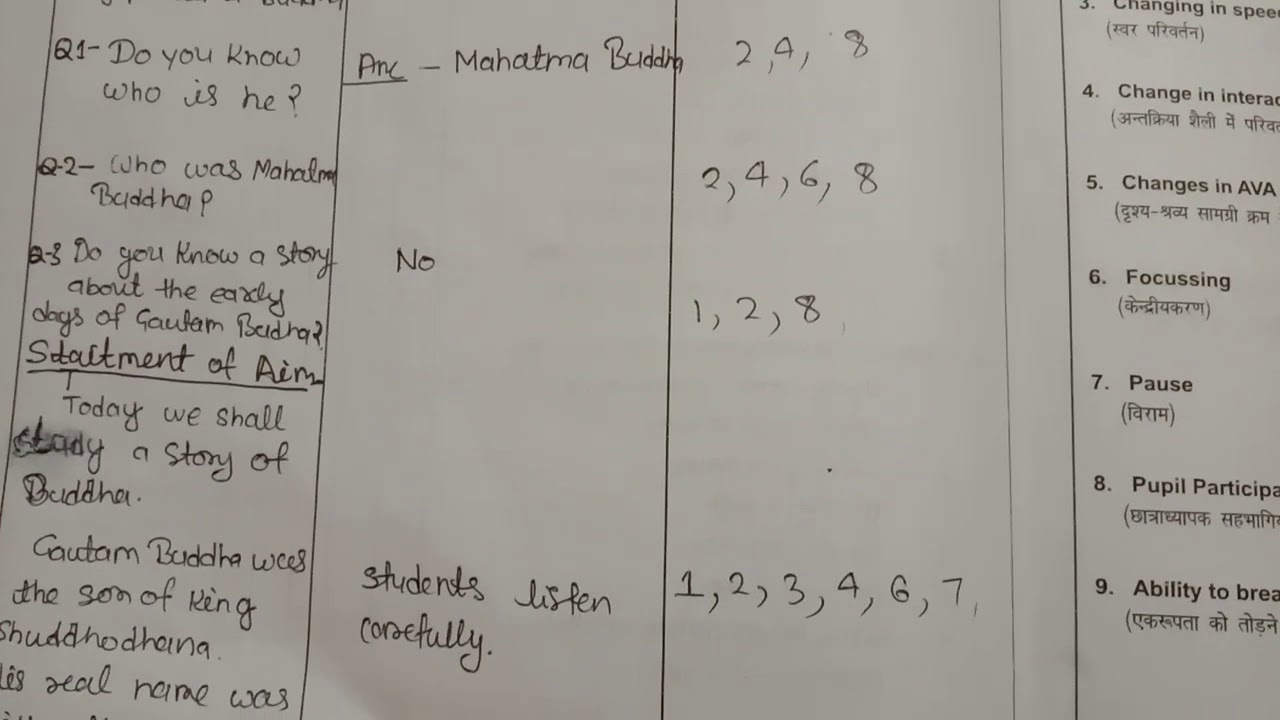 Q1- Do you know
who is he?
Ans - Mahatma Buddha
2, 4, 8
Q-2- Who was Mahatma
Buddha?
2, 4, 6, 8
Q-3 Do you know a story
about the early
days of Gautam Budha?
No
1, 2, 8
Staitment of Aim
Today we shall
study a story of
Buddha.
Gautam Buddha was
the son of King
Shuddhodhana.
is real name was
students listen
carefully.
1, 2, 3, 4, 6, 7,
3. Changing in spee
(स्वर परिवर्तन)
4. Change in interac
(अन्तक्रिया शैली में परिव
5. Changes in AVA
(दृश्य-श्रव्य सामग्री क्रम
6. Focussing
(केन्द्रीयकरण)
7. Pause
(विराम)
8. Pupil Participa
(छात्राध्यापक सहभागि
9. Ability to brea
(एकरूपता को तोड़ने